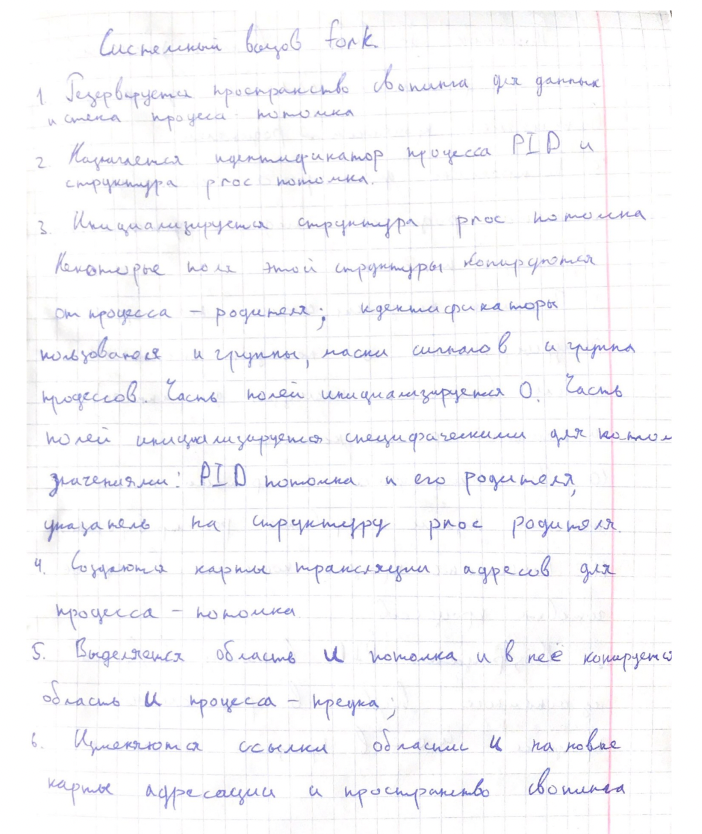 Системный вызов fork
1 Резервируется пространство свопинга для данных
и стека процеса потомка
2 Назначается идентификатор процесса PID и
структура proc потомка.
3. Инициализируется структура proc потомка
Некоторые поля этой структуры копируются
от процесса - родителя; идентификаторы
пользователя и группы, маски сигналов и группа
процессов. Часть полей инициализируется 0. Часть
полей инициализируется специфическими для
значениями: PID потомка и его родителя,
указатель на структуру proc родителя.
4. Создаются карты трансляции адресов для
процесса - потомка
5. Выделяется область U потомка и в неё копируется
область U процесса - предка;
6. Изменяются ссылки области U на новые
карты адресации и пространство свопинга